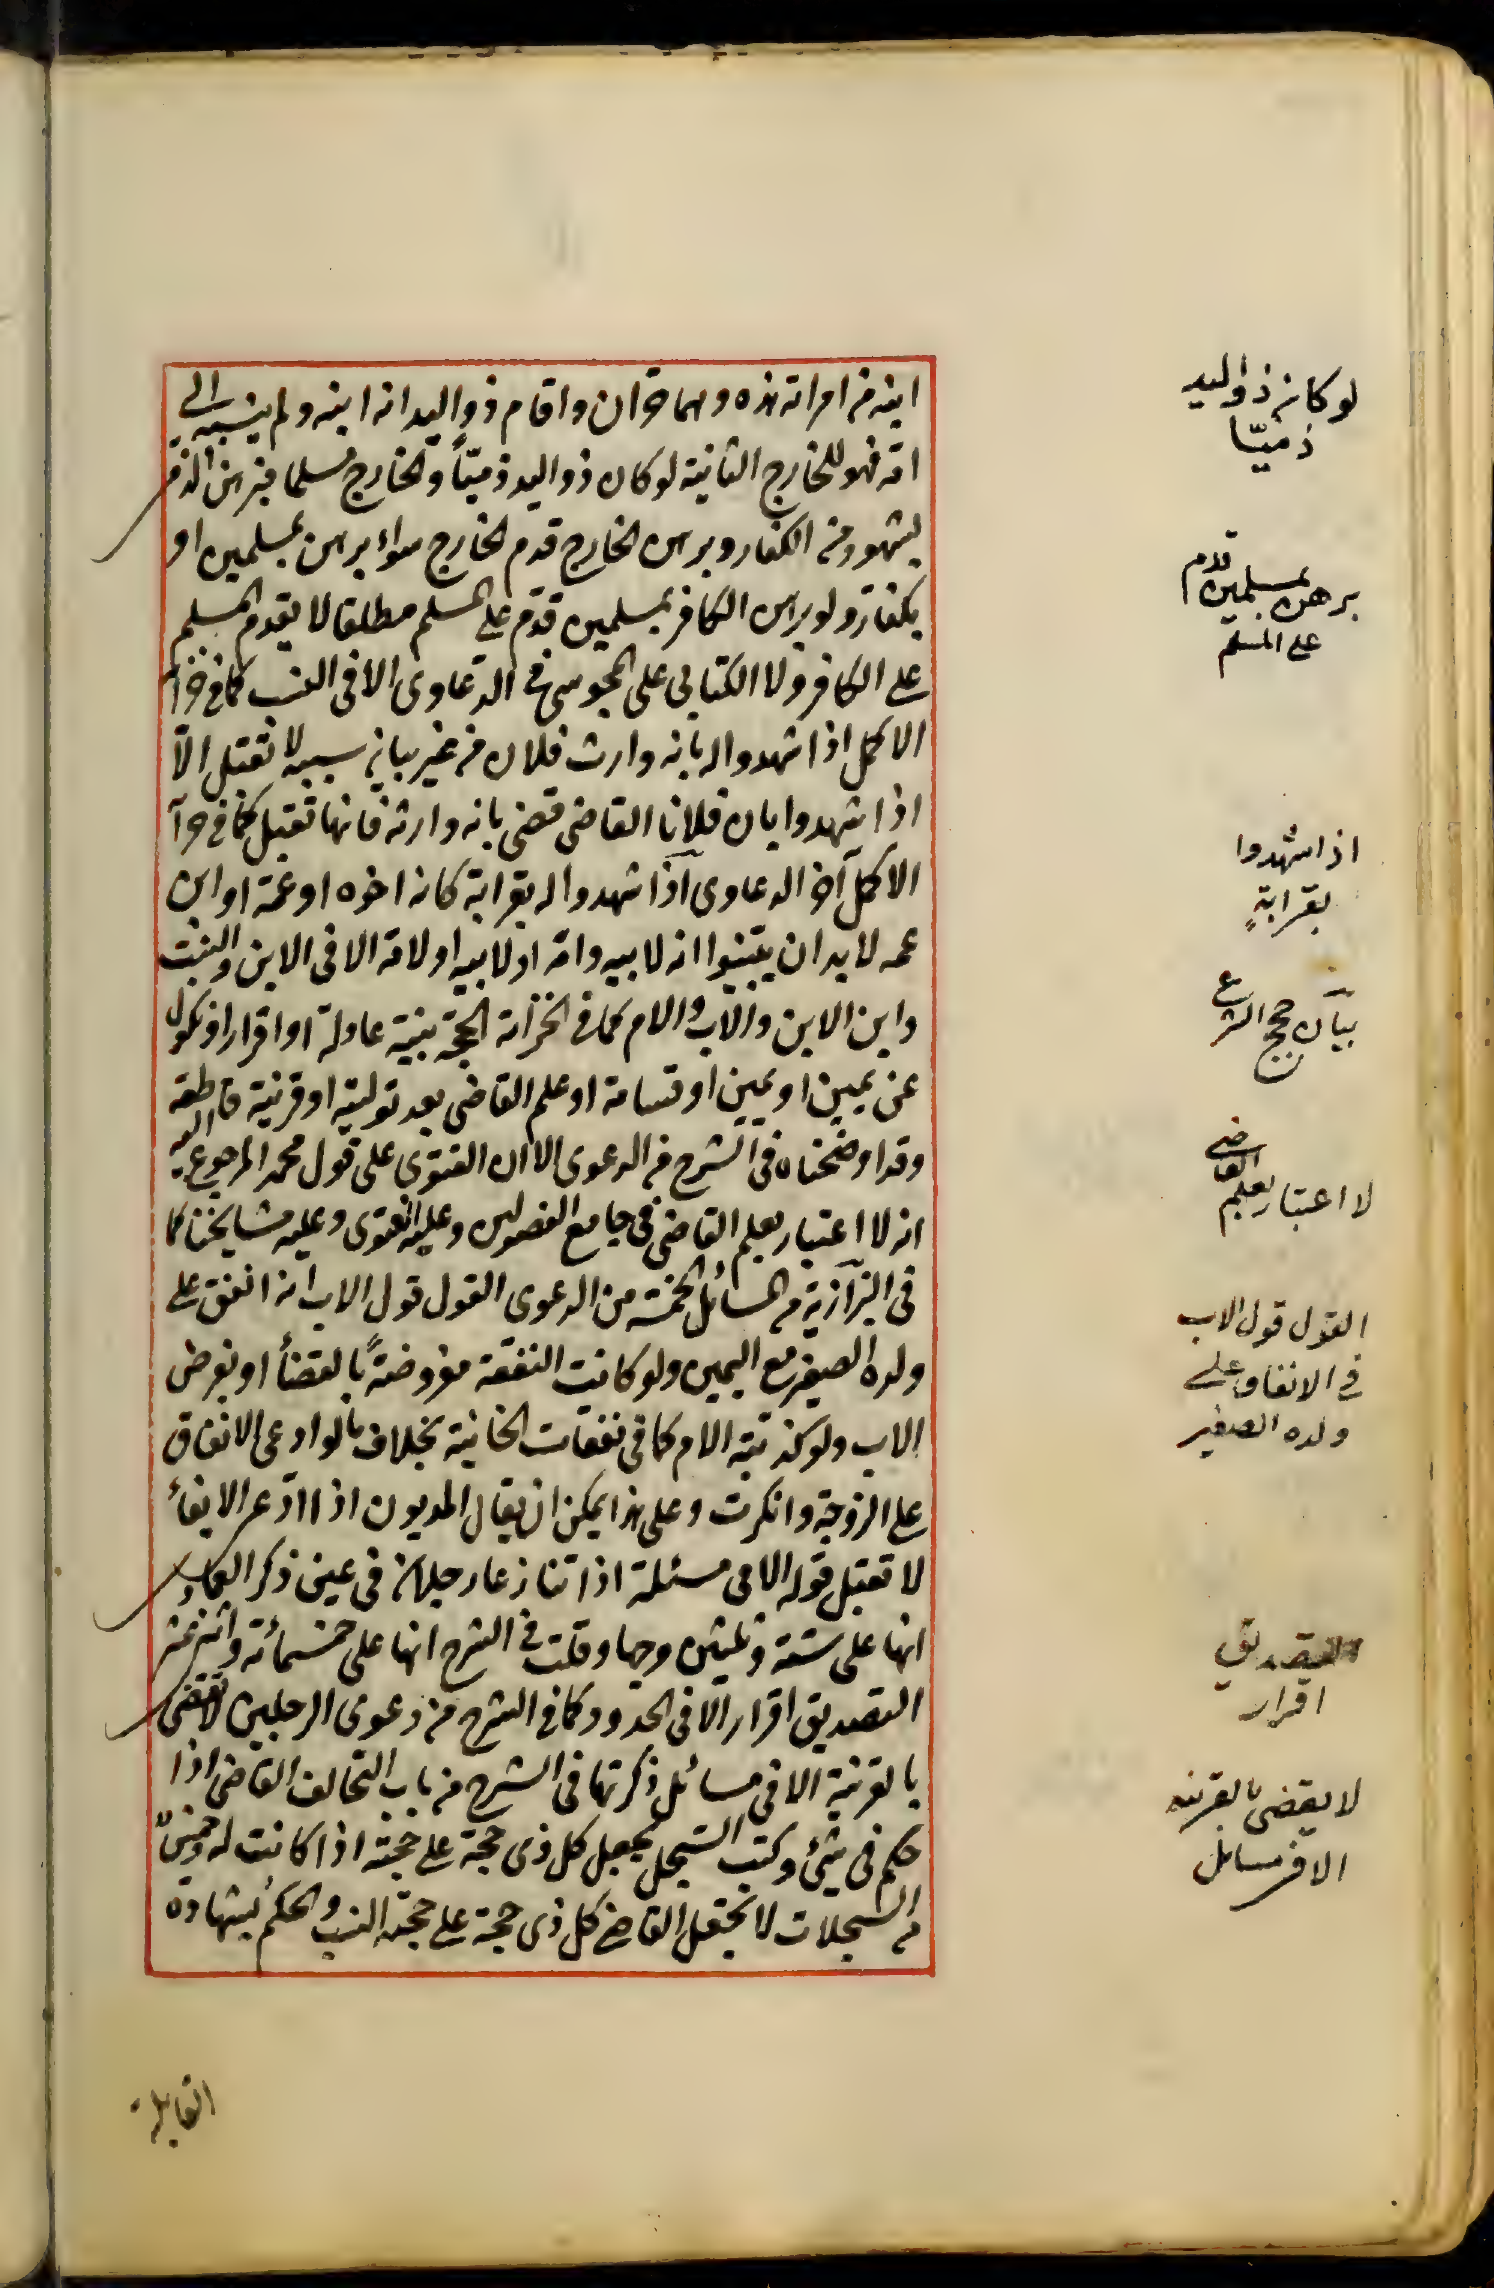 ابنه من امراته هذه وهما حران واقام ذو اليد انه ابنه ولم ينسبه الى
امه فهو للخارج الثانية لو كان ذو اليد ذميّاً والخارج مسلما فبرهن الذمى
بشهود من الكفار وبرهن الخارج قدم الخارج سواء برهن بمسلمين او
بكفار ولو برهن الكافر بمسلمين قدّم على المسلم مطلقا لا يقدم المسلم
على الكافر ولا الكتابى على المجوسى فى الدعاوى الا فى النسب كما فى خزانة
الاكمل اذا شهدوا له بانه وارث فلان من غير بيان سببه لا تقبل الّا
اذا شهدوا بان فلانا القاضى قضى بانه وارثه فانها تقبل كما فى خزانة
الاكمل آخر الدعاوى اذا شهدوا له بقرابة كانه اخوه او عمه او ابن
عمه لا بد ان يبينوا انه لابيه وامه او لابيه او لامه الا فى الابن والبنت
وابن الابن والاب والام كما فى الخزانة الحجة بينة عادلة او اقرار او نكول
عن يمين او يمين او قسامة او علم القاضى بعد توليته او قرينة قاطعة
وقد اوضحناه فى الشرح من الدعوى الا ان الفتوى على قول محمد المرجوع اليه
انه لا اعتبار بعلم القاضى فى جامع الفصولين وعليه الفتوى وعليه مشايخنا كما
فى البزازية من المسائل المخمسة من الدعوى القول قول الاب انه انفق على
ولده الصغير مع اليمين ولو كانت النفقة مفروضةً بالقضأ او بفرض
الاب ولو كذبته الام كما فى نفقات الخانية بخلاف ما لو ادعى الانفاق
على الزوجة وانكرت وعلى هذا يمكن ان يقال المديون اذا ادّعى الايفاء
لا تقبل قوله الا فى مسئلة اذا تنازعا رجلان فى عين ذكر العمادى
انها على ستة وثلثين وجها وقلت فى الشرح انها على خمسمائة واثنى عشر
التصديق اقرار الّا فى الحدود كما فى الشرح من دعوى الرجلين لا يقضى
بالقرينة الا فى مسائل ذكرتها فى الشرح من باب التحالف القاضى اذا
حكم فى شئ وكتب السجل يجعل كل ذى حجة على حجته اذا كانت له وخمس
من السجلات لا يجعل القاضى كل ذى حجة على حجته النسب والحكم بشهادة
القابلة
لو كان ذو اليد
ذميّا
برهن بمسلمين قدم
على المسلم
اذا شهدوا
بقرابةٍ
بيان حجج الشرع
لا اعتبار بعلم القاضى
القول قول الاب
فى الانفاق على
ولده الصغير
التصديق
اقرار
لا يقضى بالقرينه
الا فى مسائل